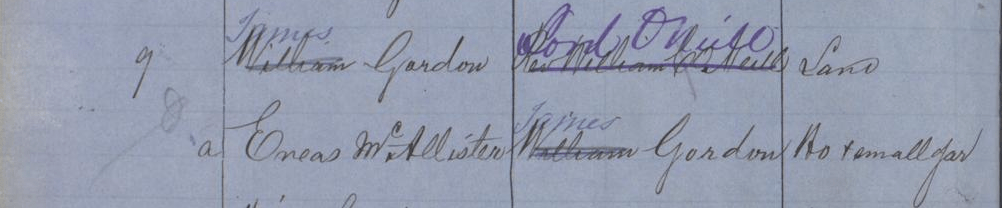 James Lord O'Neill
9 William Gordon Rev William O'Neill Land
James
a Eneas McAllister William Gordon Ho & small gar